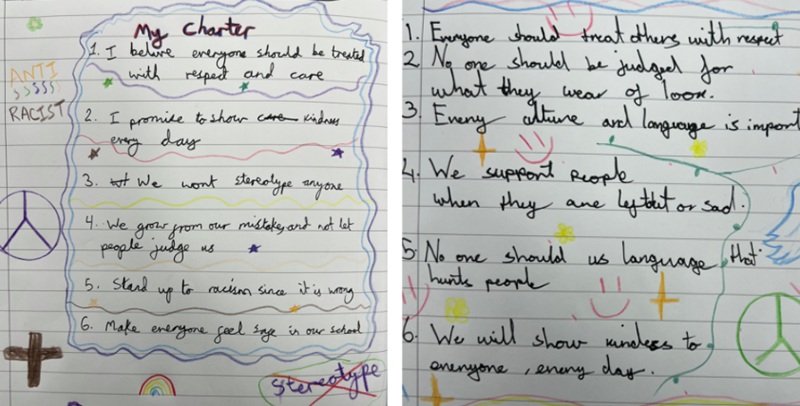 My Charter
1. I belive everyone should be treated
with respect and care
ANTI
RACIST
2. I promise to show care kindness
every day
3. We wont stereotype anyone
4. We grow from our mistakes, and not let
people judge us
5. Stand up to racism since it is wrong
6. Make everyone feel sage in our school
stereotype
1. Everyone should treat others with respect
2 No one should be judged for
what they wear of look.
3. Every culture and language is import
4. We support people
when they are left out or sad.
5. No one should us language that
hurts people
6. We will show kindess to
everyone, every day.